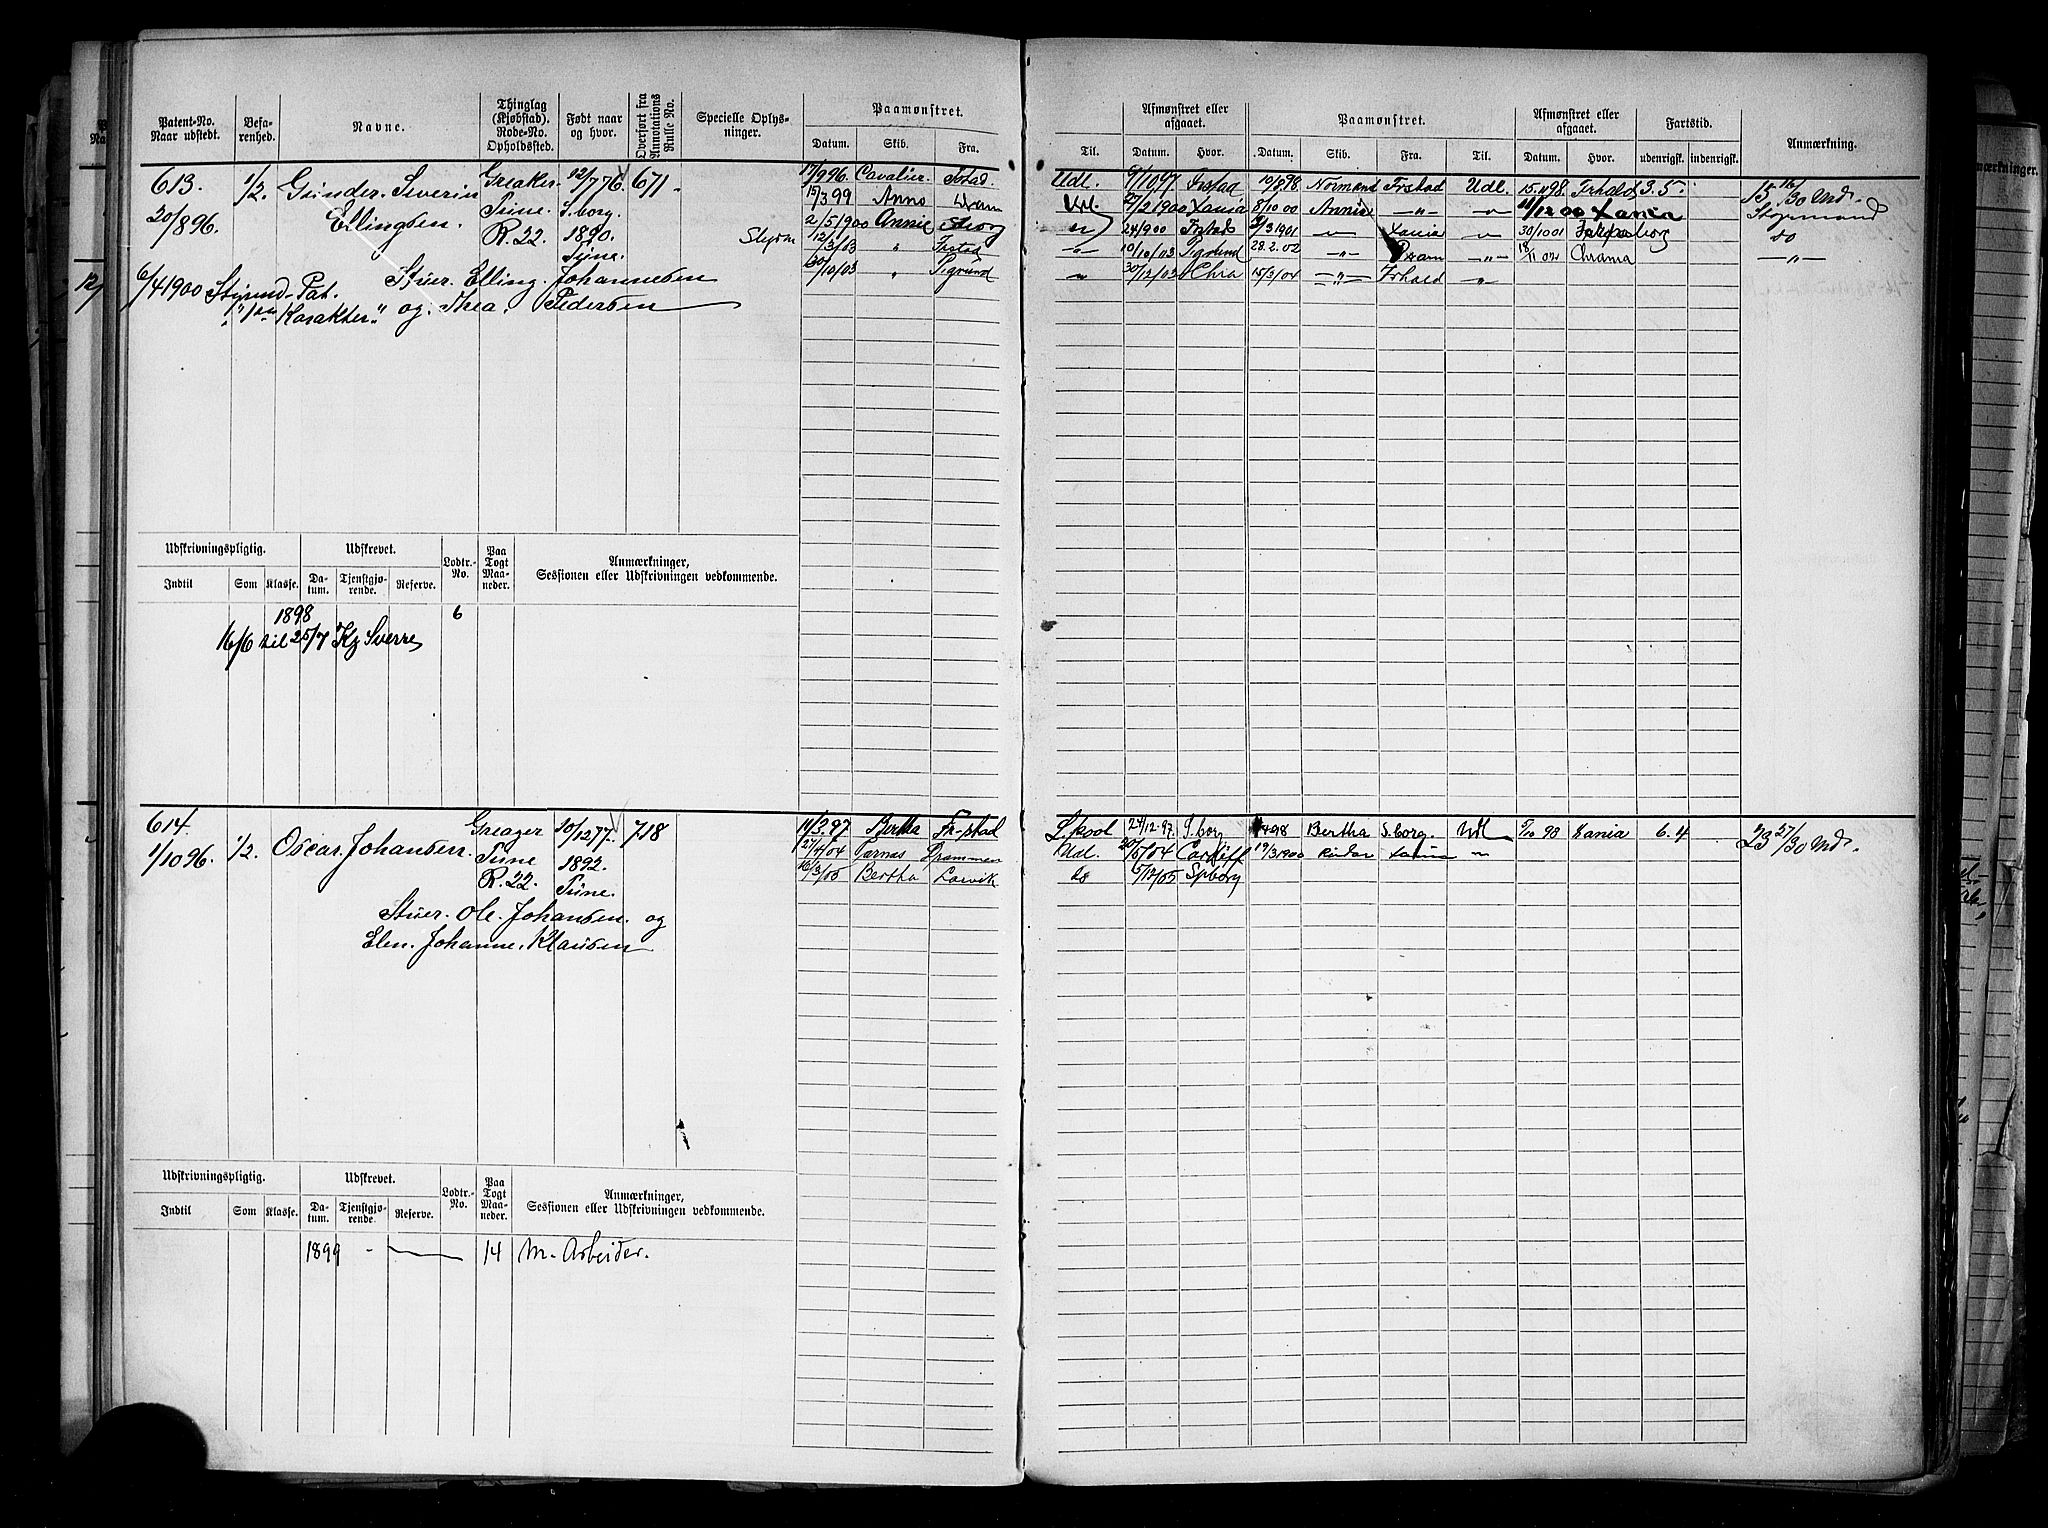 Patent-No. Naar udstedt.
Befarenhed.
Navne.
Thinglag (Kjøbstad). Rode-No. Opholdssted.
Født naar og hvor.
Overført fra Annotations Rulle No.
Specielle Oplysninger.
Paamønstret.
Datum. Skib. Fra.
613. 1/2. Gunder Severin Greaker 12/7 76 671 17/9 96. Cavalier. Frstad.
30/8 96. Ellingsen. Tune. S.borg. 15/3 99 Anno Dram
R. 22. 1890. 2/5 1900 Annie Sborg
Tune. Styrm 12/3 03 " Frstad
6/4 1900 Styrmd-Pat. Stuer. Elling Johannesen 30/10 03 " Sigrund
"1ste Karakter" og Thea Pedersen
Udskrivningspligtig. Udskrevet. Lodtr.-No. Paa Togt Maaneder. Anmærkninger, Sessionen eller Udskrivningen vedkommende.
Indtil Som Klasse. Datum. Tjenstgjørende. Reserve.
1898 6
16/6 til 25/7 Kj Sverre
614. 1/2. Oscar Johansen. Greager 30/12 77. 718 11/3 97 Bertha Fr-stad
1/10 96. Tune 1892. 27/4 04 Tarnas Drammen
R. 22. Tune. 16/3 05 Bertha Larvik
Stuer. Ole Johansen. og
Elen Johanne Klausen
Udskrivningspligtig. Udskrevet. Lodtr.-No. Paa Togt Maaneder. Anmærkninger, Sessionen eller Udskrivningen vedkommende.
Indtil Som Klasse. Datum. Tjenstgjørende. Reserve.
1899 - 14 M. Arbeider.
Til. Afmønstret eller afgaaet. Datum. Hvor.
Paamønstret. Datum. Skib. Fra. Til.
Afmønstret eller afgaaet. Datum. Hvor.
Fartstid. udenrigsk. indenrigsk.
Anmærkning.
Udl. 9/10 97 Frstad 10/8 98. Normand Frstad Udl. 15.11 98. Frhald 3.5. 15 16/30 Md.
27/2 1900 Xania 8/10 00 Annie —"— " 11/12 00 Xania Styrmand
" 24/9 00 Frstad 3/3 1901 " Xania " 30/10 01 do
" 10/10 03 Sigrund 28.2.02 —"— Dram —"— 18/11 02 Chrania —"—
" 30/12 03 Chra 15/3 04 —"— Frhald —"—
L.pool 24/12.97. S.borg 98 Bertha S.borg. Udl 5/10 98 Xania 6.4 23 27/30 Md.
Udl. 20/5 04 Cardiff 19/3 1900 Xania "
do 5/12 05 Spborg